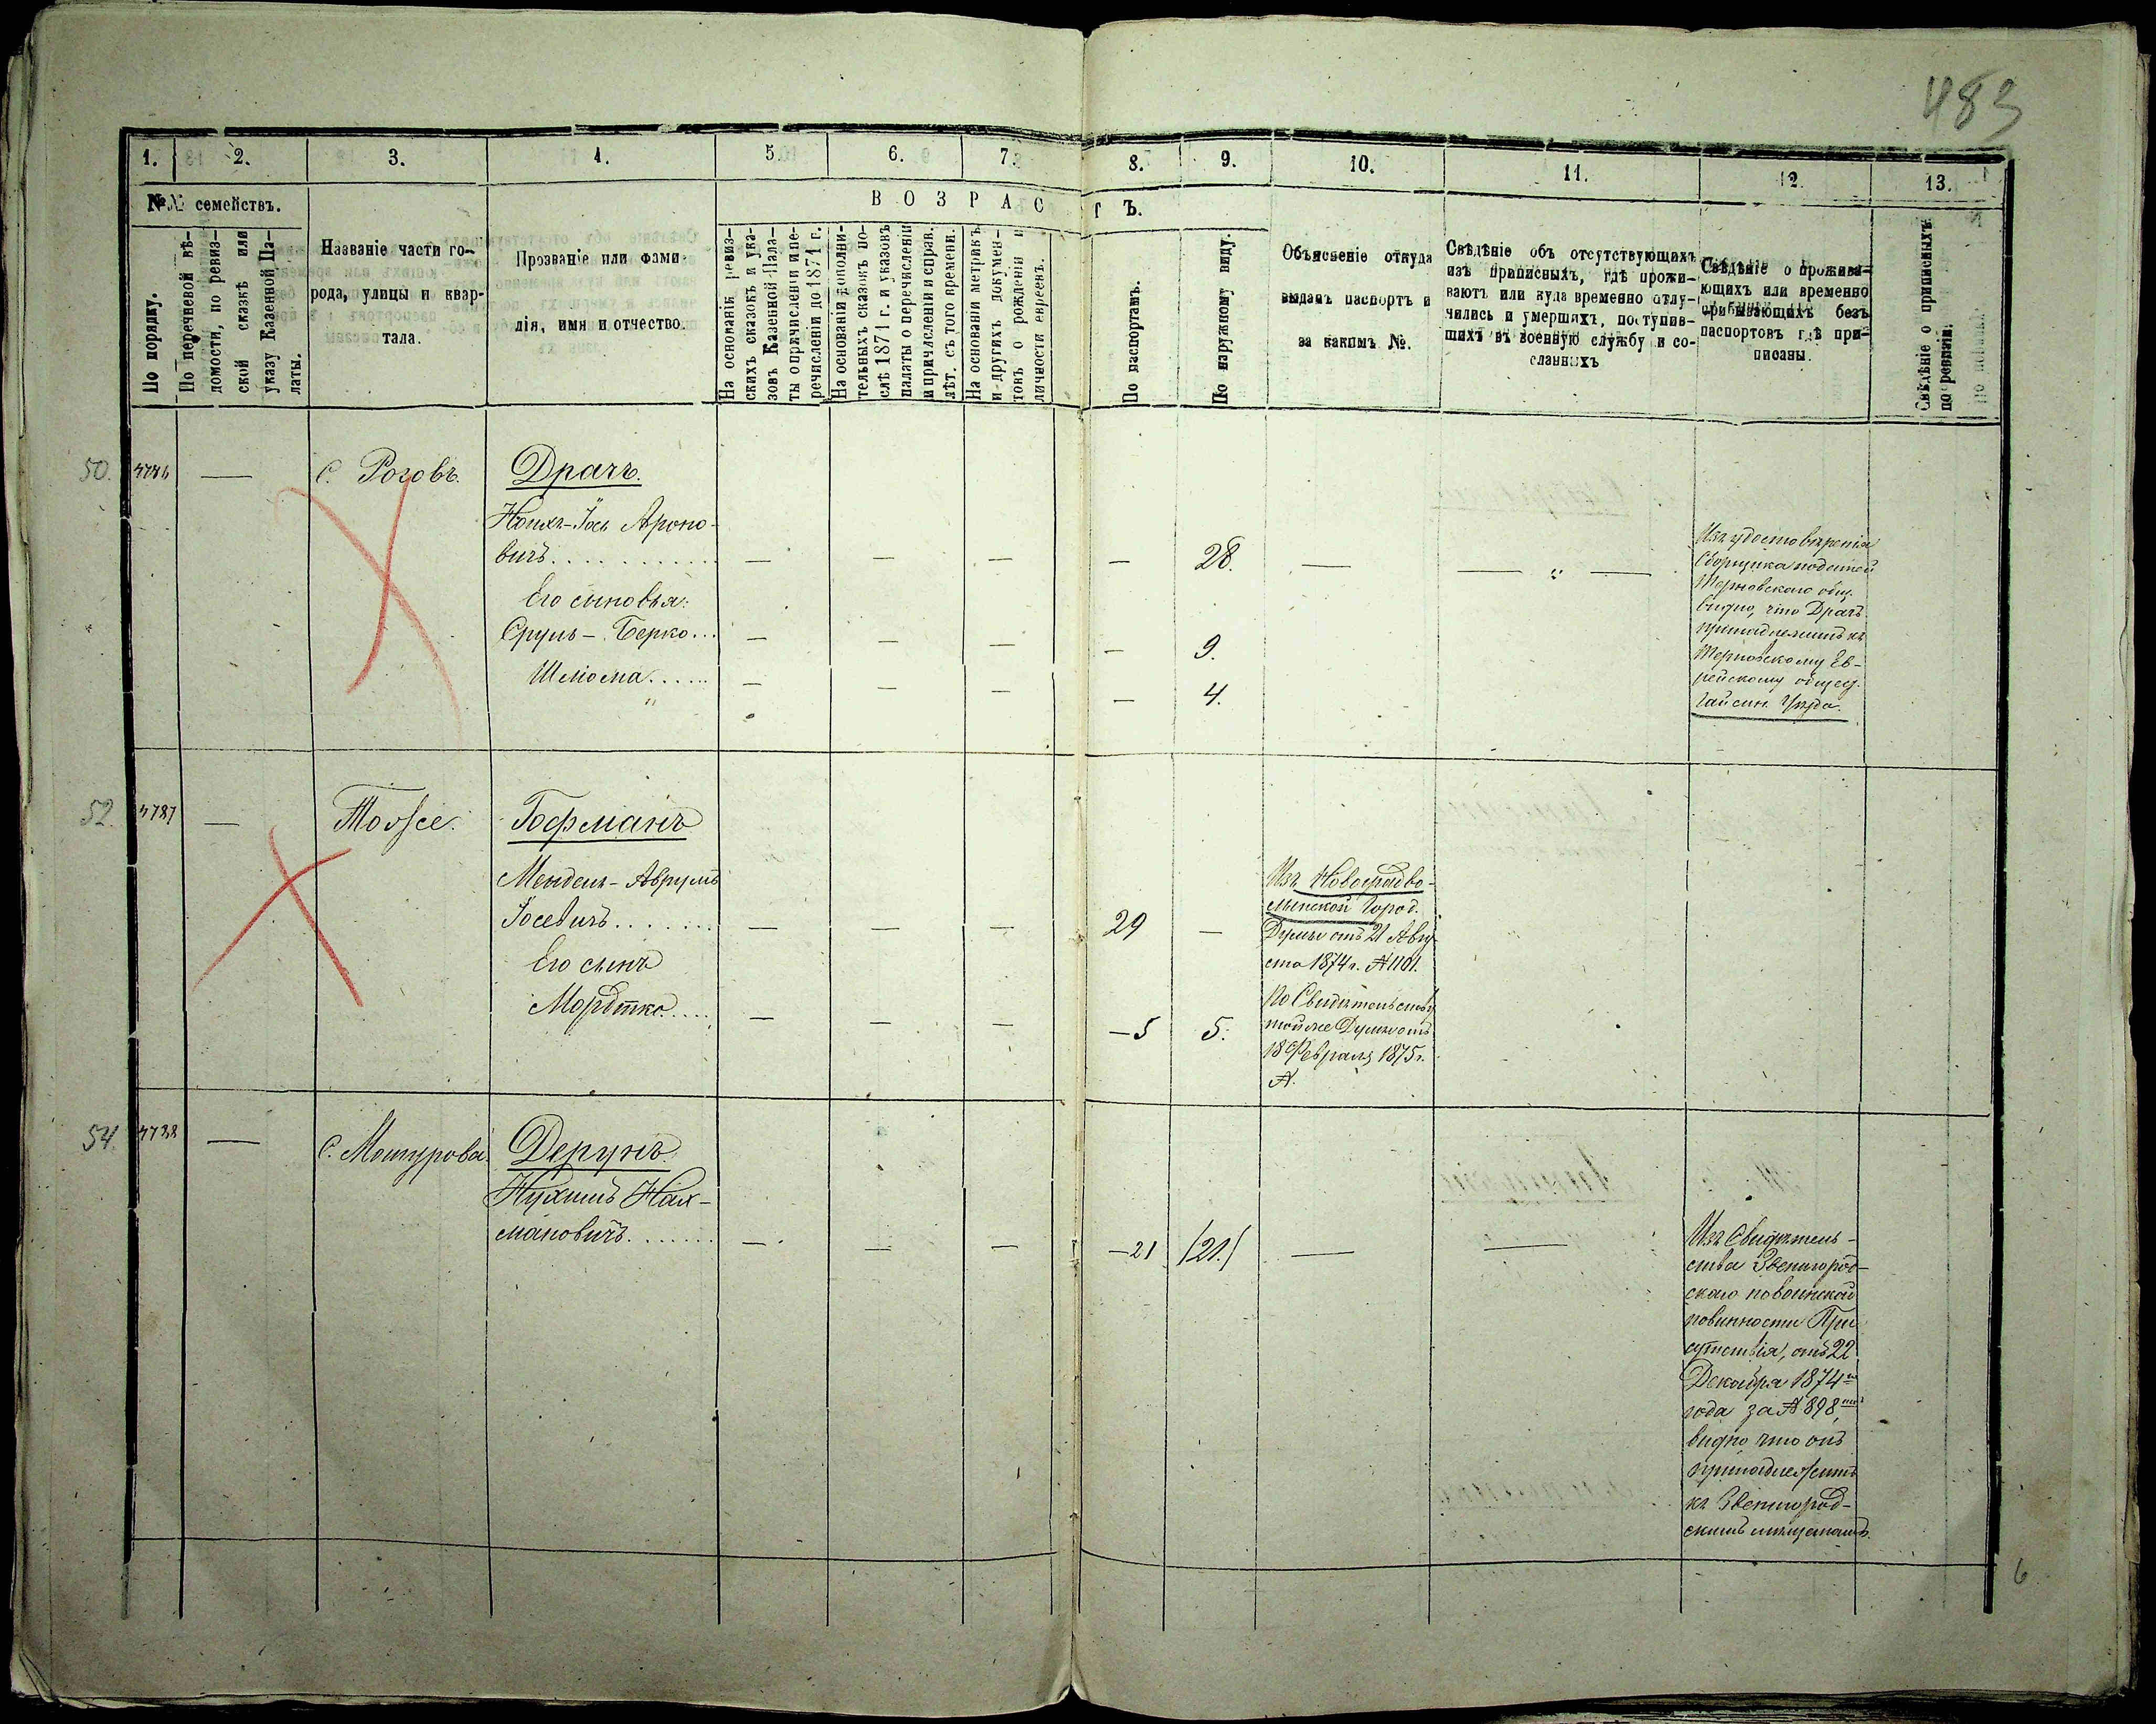 483
1. 2. 3. 4. 5. 6. 7. 8. 9. 10. 11. 12. 13.
№№ семействъ.
По порядку.
По перечневой вѣ-
домости, по ревиз-
ской сказкѣ или
указу Казенной Па-
латы.
Названіе части го-
рода, улицы и квар-
тала.
Прозваніе или фами-
лія, имя и отчество.
ВОЗРАСТЪ.
На основаніи ревиз-
скихъ сказокъ и ука-
зовъ Казенной Пала-
ты о причисленіи и пе-
речисленіи до 1871 г.
На основаніи дополни-
тельныхъ сказокъ по-
слѣ 1871 г. и указовъ
палаты о перечисленіи
и причисленіи и справ.
лѣт. съ того времени.
На основаніи метрикъ
и другихъ докумен-
товъ о рожденіи и
личности евреевъ.
По паспортамъ.
По наружному виду.
Объясненіе откуда
выданъ паспортъ и
за какимъ №.
Свѣдѣніе объ отсутствующихъ
изъ приписныхъ, гдѣ прожи-
ваютъ или куда временно отлу-
чились и умершихъ, поступив-
шихъ въ военную службу и со-
сланныхъ
Свѣдѣніе о прожива-
ющихъ или временно
прибывающихъ безъ
паспортовъ гдѣ при-
писаны.
Свѣдѣніе о приписныхъ
по ревизіи.
50. 4786 — С. Роговъ. Драчъ.
Ароно-
вичъ — — — — 28. — — „ —
Его сыновья:
Сруль-Берко — — — — 9.
Шліома — — — — 4.
Изъ удостовѣренія
Сборщика податей
Терновскаго общ.
видно, что Драчъ
принадлежитъ къ
Терновскому Ев-
рейскому общес.
Гайсин. Уѣзда.
52. 4787 — Тоже. Гофманъ
Мендель-Аврумъ
Іосевичъ — — — 29 —
Его сынъ
Мордтко — — — —5 5.
Изъ Новоградво-
лынской Город.
Думы отъ 21 Авгу-
ста 1874 г. № 1101.
По Свидѣтельству
той же Думы отъ
18 Февраля 1875 г.
№.
54. 4788 — С. Машурова. Дерунъ.
Нухимъ Нах-
мановичъ — — — —21 /21/ — —
Изъ Свидѣтель-
ства Звенигород-
скаго по воинской
повинности При
сутствія, отъ 22
Декабря 1874го
года за № 898мъ
видно что онъ
принадлежитъ
къ Звенигород-
скимъ мѣщанамъ.
6